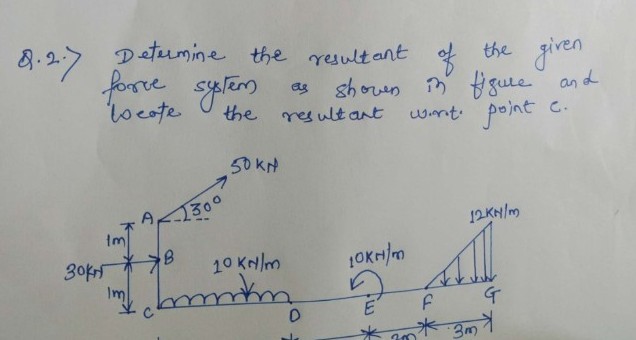 Q.2.> Determine the resultant of the given
force system as shown in figure and
locate the resultant w.r.t. point c.
50 KN
30°
A
12KN/m
1m
B
30KN
10 KN/m
10KN/m
1m
C
D
E
F
G
2m
3m